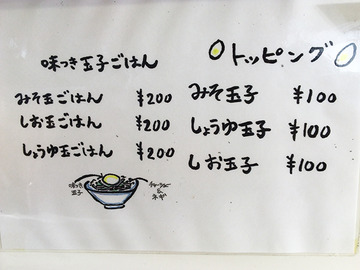 味つき玉子ごはん
みそ玉ごはん ¥200
しお玉ごはん ¥200
しょうゆ玉ごはん ¥200
味つき
玉子
チャーシュー
&
ネギ
トッピング
みそ玉子 ¥100
しょうゆ玉子 ¥100
しお玉子 ¥100